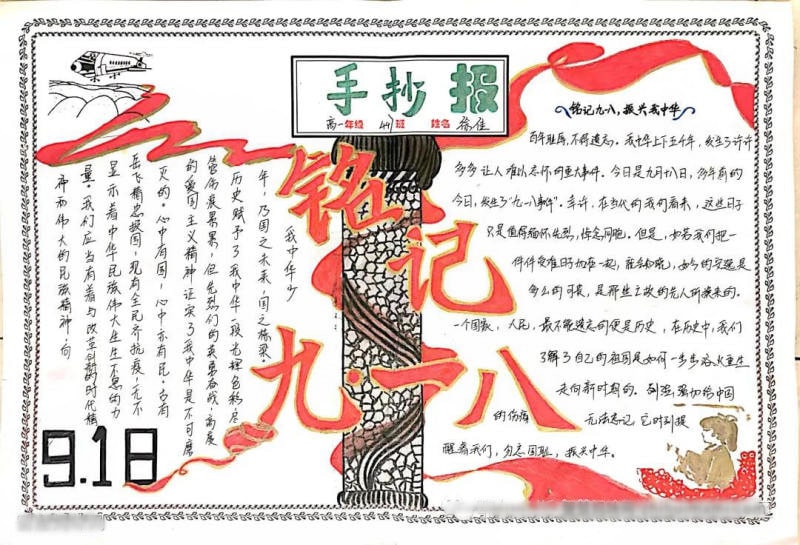 手抄报
高一年级 441班 姓名 徐佳
铭记九·一八
铭记九一八，振兴我中华
百年耻辱，不得遗忘。我中华上下五千年，发生了许许
多多让人难以忘怀的重大事件。今日是九月十八日，多年前的
今日，发生了“九一八事件”。或许，在当代的我们看来，这些日子
只是值得缅怀先烈，悼念同胞。但是，如若我们把一
件件受难日子加在一起，能会知晓，如今的安逸是
多么的可贵，是那些之故的先人所换来的。
一个国家，人民，最不能遗忘的便是历史，在历史中，我们
了解了自己的祖国是如何一步步浴火重生
走向新时期的。列强强加给中国
的伤痛 无法忘记 它时刻提
醒着我们，勿忘国耻，振兴中华。
我中华少
年，乃国之未来，国之栋梁。
历史赋予了我中华一段光辉色彩，尽
管伤痕累累，但先烈们的英勇奋战，高度
的爱国主义精神，证实了我中华是不可磨
灭的。心中有国，心中亦有民。古有
岳飞精忠报国，现有全民齐抗疫，无不
显示着中华民族伟大生生不息的力
量。我们应当有着与改革创新的时代精
神和伟大的民族精神，向
9.18